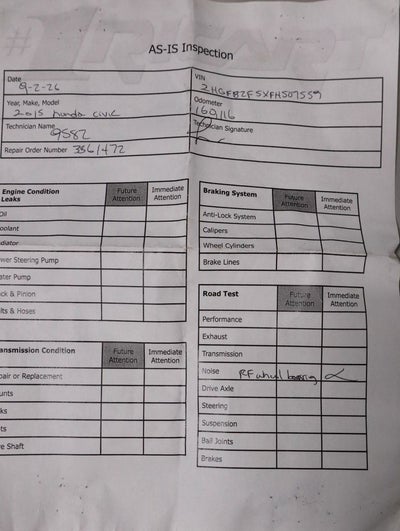 AS-IS Inspection
Date
9-2-26
VIN
2HGFB2F5XFH507559
Year, Make, Model
2015 Honda Civic
Odometer
160,116
Technician Name
9582
Technician Signature
Repair Order Number 3361472
Engine Condition
Leaks
Future Attention
Immediate Attention
Oil
oolant
adiator
wer Steering Pump
ater Pump
ck & Pinion
lts & Hoses
ansmission Condition
Future Attention
Immediate Attention
pair or Replacement
unts
ks
ts
e Shaft
Braking System
Future Attention
Immediate Attention
Anti-Lock System
Calipers
Wheel Cylinders
Brake Lines
Road Test
Future Attention
Immediate Attention
Performance
Exhaust
Transmission
Noise RF wheel bearing
Drive Axle
Steering
Suspension
Ball Joints
Brakes